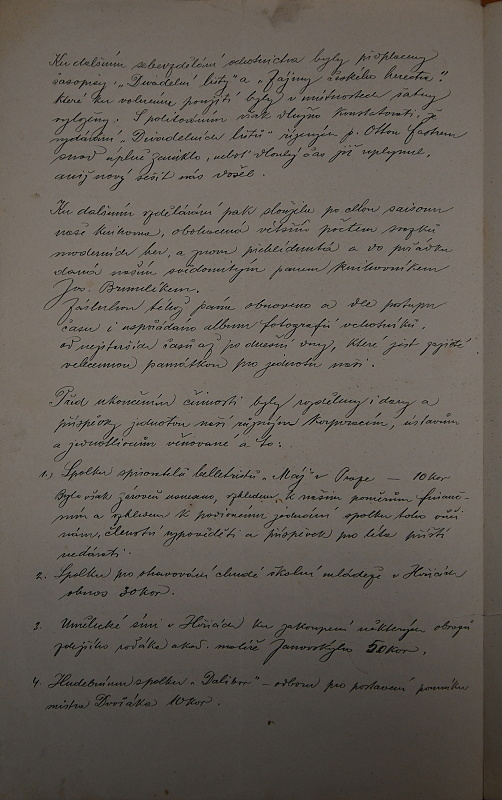 Ku dalšímu sebevzdělání ochotnictva byly předplaceny
časopisy: „Divadelní listy" a „Zájmy českého herectva",
které ku volnému použití byly v místnostech šatny
vyloženy. S politováním však dlužno konstatovati, že
vydávání „Divadelních listů" řízených p. Ottou Fastrem
snad úplně zaniklo, neboť dlouhý čas již uplynul,
aniž nový sešit nás došel.
Ku dalšímu vzdělávání pak sloužila po celou saisonu
naše knihovna, obohacená větším počtem svazků
moderních her, a znova přehlédnutá a do pořádku
daná naším svědomitým panem knihovníkem
Jos. Brumlíkem.
Zásluhou téhož pána obnoveno a dle postupu
času i uspořádáno album fotografií ochotníků,
od nejstarších časů až po dnešní dny, které jest zajisté
velecennou památkou pro jednotu naši.
Před ukončením činnosti byly rozděleny i dary a
příspěvky jednotou naší různým korporacím, ústavům
a jednotlivcům věnované a to:
1.) Spolku spisovatelů belletristů „Máj" v Praze — 10 kor
Bylo však zároveň usneseno, vzhledem k našim poměrům finanč-
ním a vzhledem k podivnému jednání spolku toho vůči
nám, členství vypověděti a příspěvek pro léta příští
nedávati.
2. Spolku pro ošacování chudé školní mládeže v Hořicích
obnos 30 kor.
3. Umělecké síni v Hořicích ku zakoupení některých obrazů
zdejšího rodáka akad. malíře Janovského 50 kor.
4. Hudebnímu spolku „Dalibor" – odboru pro postavení pomníku
mistra Dvořáka 10 kor.